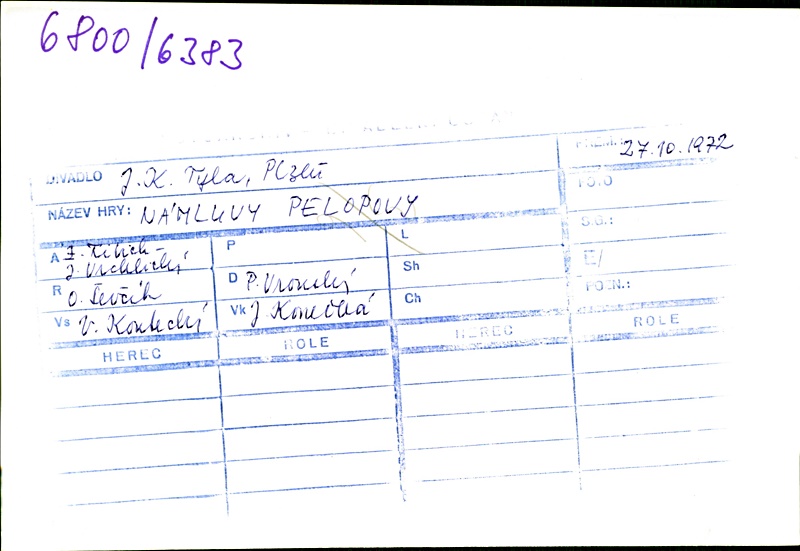 6800/6383
DIVADLO J. K. Tyla, Plzeň
PREM.: 27.10.1972
NÁZEV HRY: NÁMLUVY PELOPOVY
FOTO
S.G.:
A Z. Fibich -
J. Vrchlický
P
L
R O. Ševčík
D P. Vronský
Sh
Vs V. Koutecký
Vk J. Konečná
Ch
POZN.:
HEREC ROLE HEREC ROLE